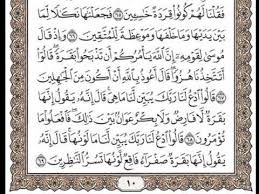 فَقُلْنَا لَهُمْ كُونُوا۟ قِرَدَةً خَـٰسِـِٔينَ ٦٥ فَجَعَلْنَـٰهَا نَكَـٰلًا لِّمَا
بَيْنَ يَدَيْهَا وَمَا خَلْفَهَا وَمَوْعِظَةً لِّلْمُتَّقِينَ ٦٦ وَإِذْ قَالَ
مُوسَىٰ لِقَوْمِهِۦٓ إِنَّ ٱللَّهَ يَأْمُرُكُمْ أَن تَذْبَحُوا۟ بَقَرَةً ۖ قَالُوٓا۟
أَتَتَّخِذُنَا هُزُوًا ۖ قَالَ أَعُوذُ بِٱللَّهِ أَنْ أَكُونَ مِنَ ٱلْجَـٰهِلِينَ ٦٧
قَالُوا۟ ٱدْعُ لَنَا رَبَّكَ يُبَيِّن لَّنَا مَا هِىَ ۚ قَالَ إِنَّهُۥ يَقُولُ إِنَّهَا
بَقَرَةٌ لَّا فَارِضٌ وَلَا بِكْرٌ عَوَانٌۢ بَيْنَ ذَٰلِكَ ۖ فَٱفْعَلُوا۟ مَا
تُؤْمَرُونَ ٦٨ قَالُوا۟ ٱدْعُ لَنَا رَبَّكَ يُبَيِّن لَّنَا مَا لَوْنُهَا ۚ قَالَ إِنَّهُۥ
يَقُولُ إِنَّهَا بَقَرَةٌ صَفْرَآءُ فَاقِعٌ لَّوْنُهَا تَسُرُّ ٱلنَّـٰظِرِينَ ٦٩
١٠